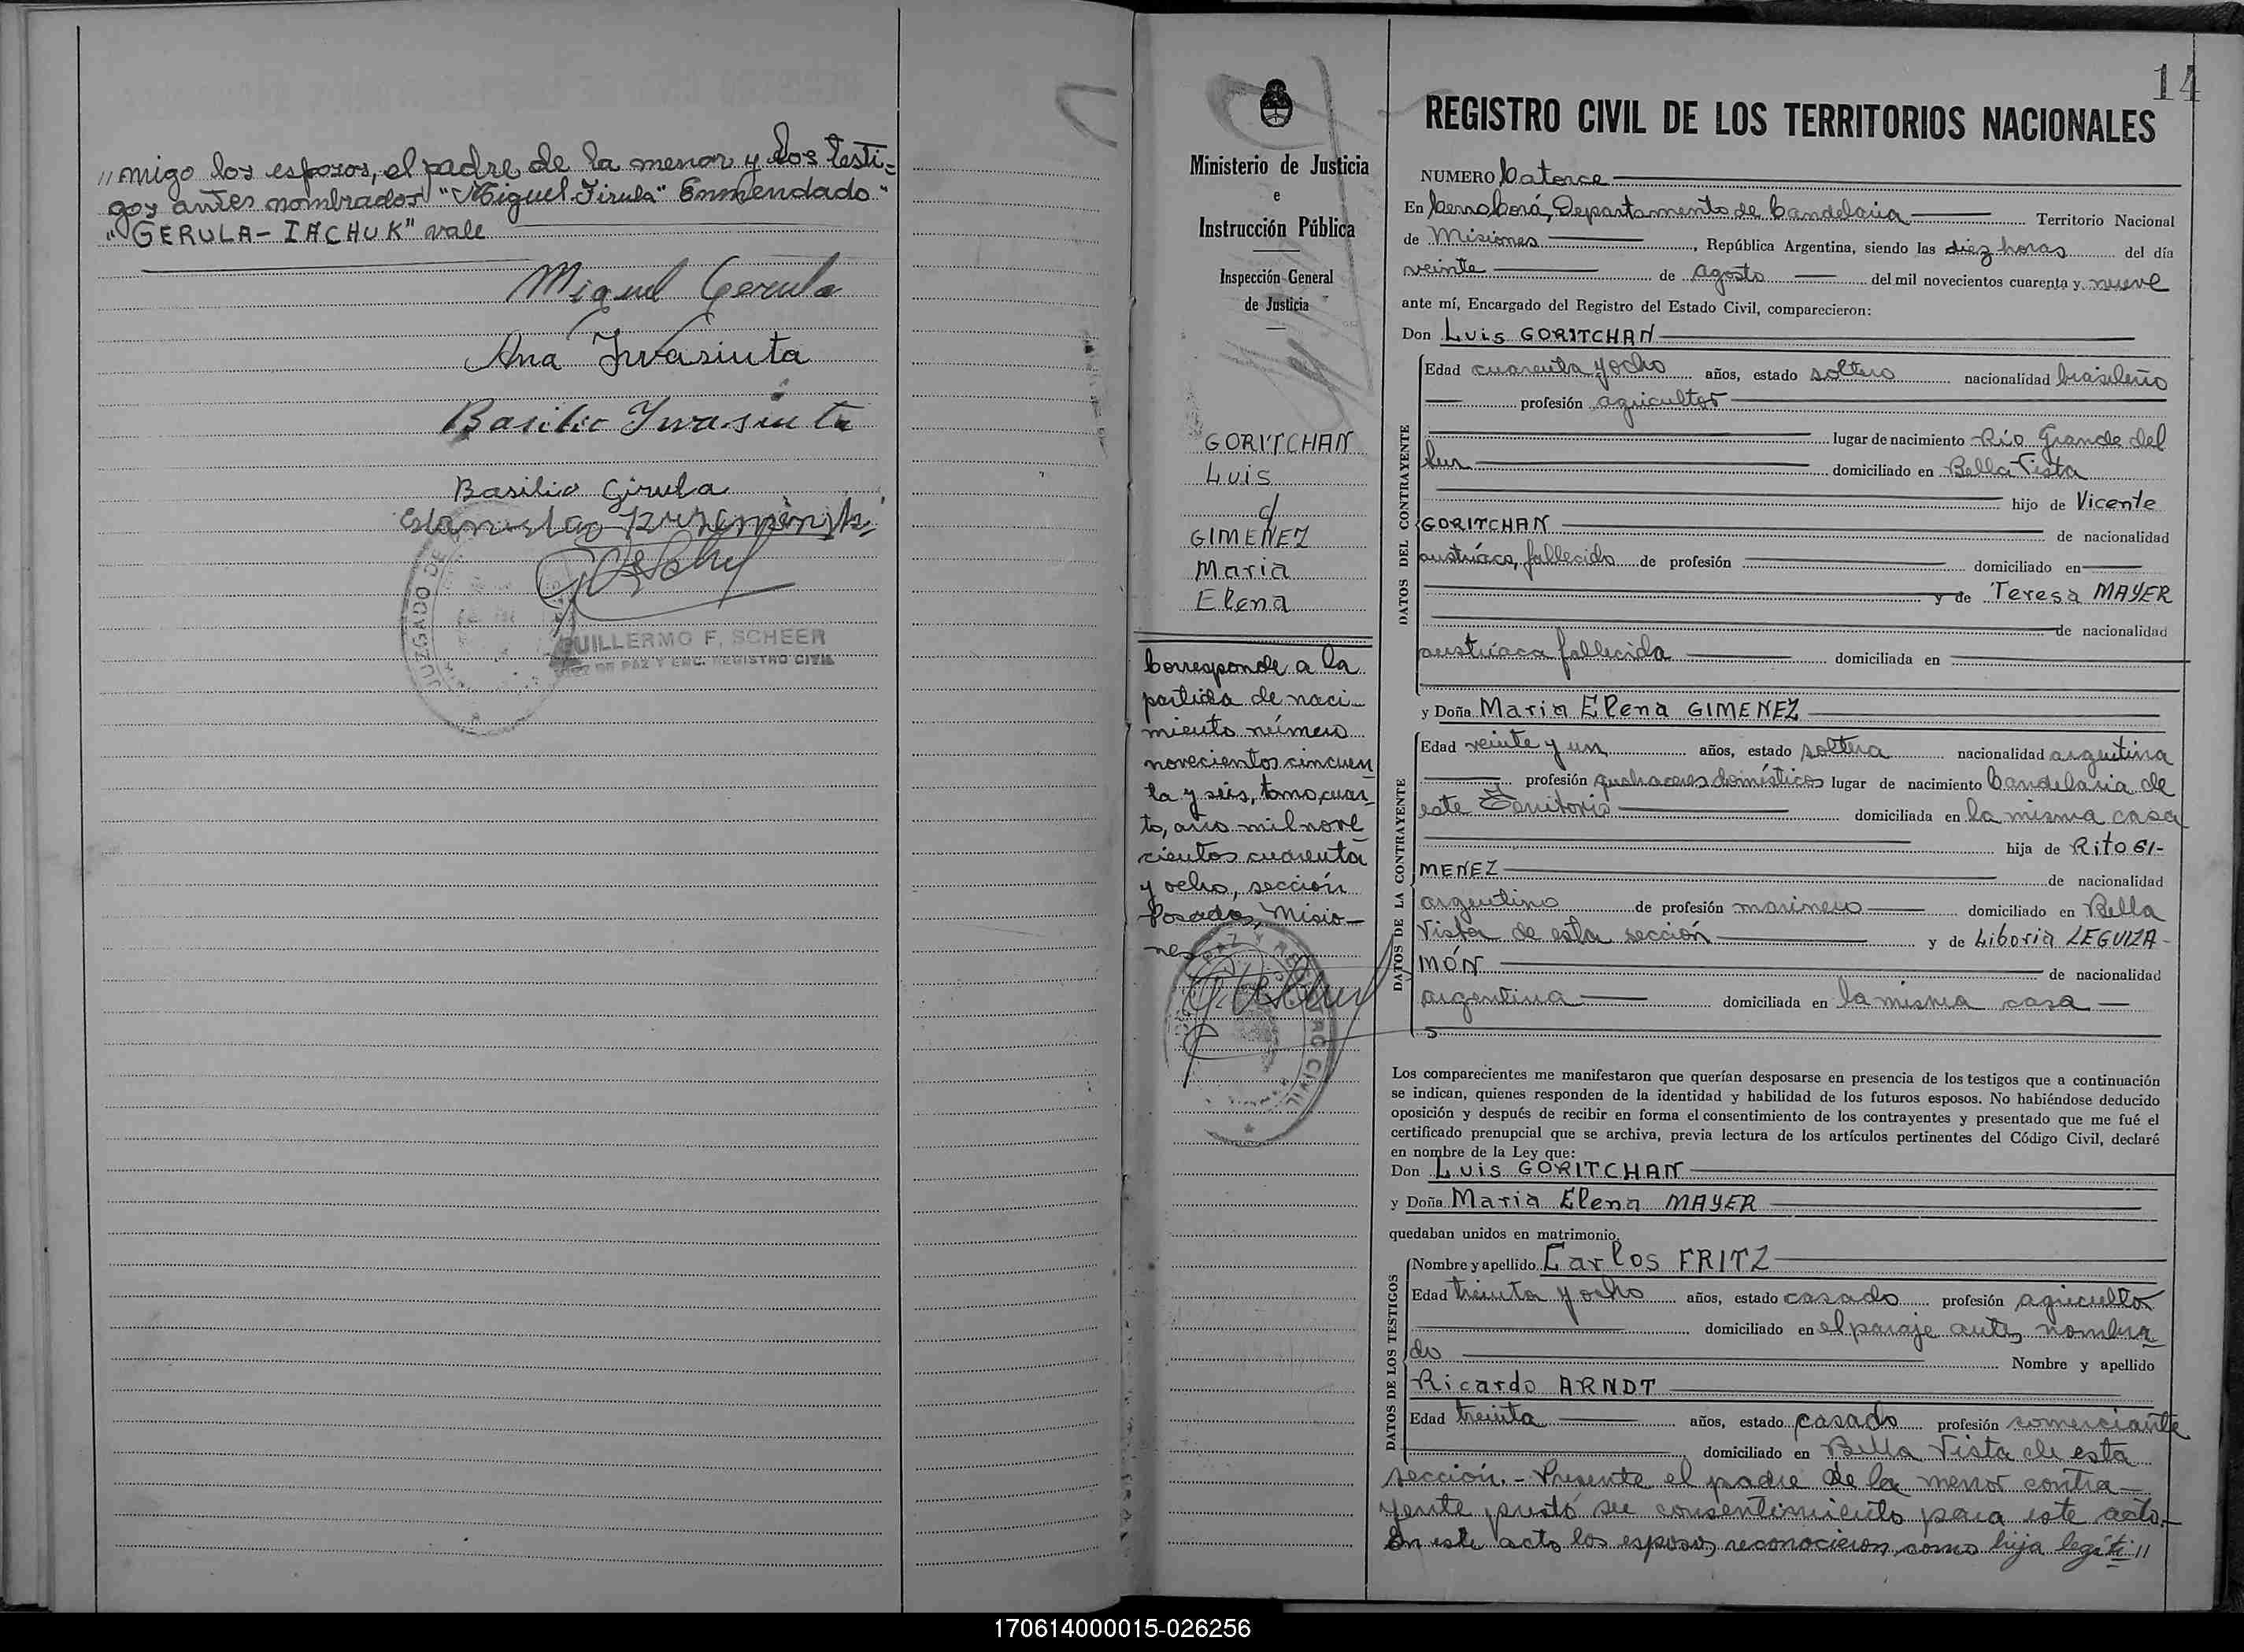 "migo los esposos, el padre de la menor y los testi=
gos antes nombrados "Miguel Firula" Enmendado"
"GERULA - IACHUK" vale
Miguel Gerula
Ana Iwasiuta
Basilio Iwasiuta
Basilio Girula
JUZGADO DE
GUILLERMO F. SCHEER
JUEZ DE PAZ Y ENC. REGISTRO CIVIL
Ministerio de Justicia
e
Instrucción Pública
Inspección General
de Justicia
GORITCHAN
Luis
c/
GIMENEZ
Maria
Elena
Corresponde a la
partida de naci-
miento número
novecientos cincuen
ta y seis, tomo cuar-
to, año mil nove
cientos cuarenta
y ocho, sección
Posadas, Misio-
nes
CIVIL
14
REGISTRO CIVIL DE LOS TERRITORIOS NACIONALES
NUMERO Catorce
En Cerro Corá, Departamento de Candelaria Territorio Nacional
de Misiones, República Argentina, siendo las diez horas del día
veinte de agosto del mil novecientos cuarenta y nueve
ante mí, Encargado del Registro del Estado Civil, comparecieron:
Don Luis GORITCHAN
DATOS DEL CONTRAYENTE
Edad cuarenta y ocho años, estado soltero nacionalidad brasileño
profesión agricultor
lugar de nacimiento Río Grande del
Sur domiciliado en Bella Vista
hijo de Vicente
GORITCHAN de nacionalidad
austríaco, fallecido de profesión domiciliado en
y de Teresa MAYER
de nacionalidad
austríaca fallecida domiciliada en
y Doña Maria Elena GIMENEZ
DATOS DE LA CONTRAYENTE
Edad veinte y un años, estado soltera nacionalidad argentina
profesión quehaceres domésticos lugar de nacimiento Candelaria de
este Territorio domiciliada en la misma casa
hija de Rito GI-
MENEZ de nacionalidad
argentino de profesión marinero domiciliado en Bella
Vista de esta sección y de Liboria LEGUIZA-
MÓN de nacionalidad
argentina domiciliada en la misma casa
Los comparecientes me manifestaron que querían desposarse en presencia de los testigos que a continuación
se indican, quienes responden de la identidad y habilidad de los futuros esposos. No habiéndose deducido
oposición y después de recibir en forma el consentimiento de los contrayentes y presentado que me fué el
certificado prenupcial que se archiva, previa lectura de los artículos pertinentes del Código Civil, declaré
en nombre de la Ley que:
Don Luis GORITCHAN
y Doña Maria Elena MAYER
quedaban unidos en matrimonio.
DATOS DE LOS TESTIGOS
Nombre y apellido Carlos FRITZ
Edad treinta y ocho años, estado casado profesión agricultor
domiciliado en el paraje antes nombra
do Nombre y apellido
Ricardo ARNDT
Edad treinta años, estado casado profesión comerciante
domiciliado en Bella Vista de esta
sección.- Presente el padre de la menor contra-
yente, prestó su consentimiento para este acto.-
En este acto los esposos, reconocieron como hija legíti//
170614000015-026256